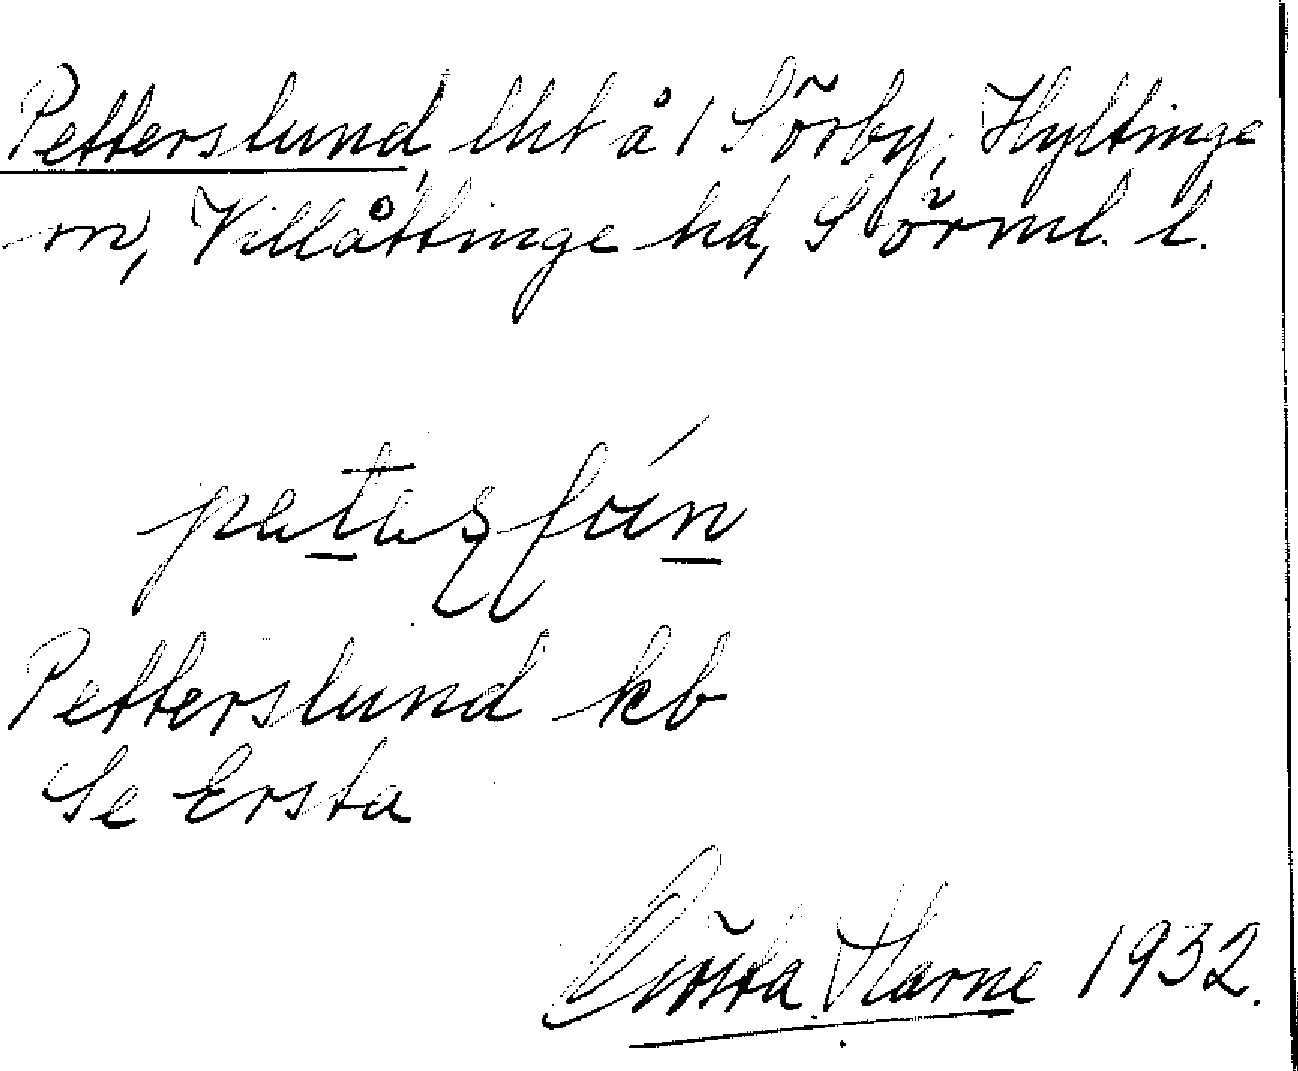 Petterslund, lht å 1 Sörby, Hyltinge
sn, Villåttinge hd, Sörml. l.
Petterslund kb
Se Ersta
Gösta Harne 1932.